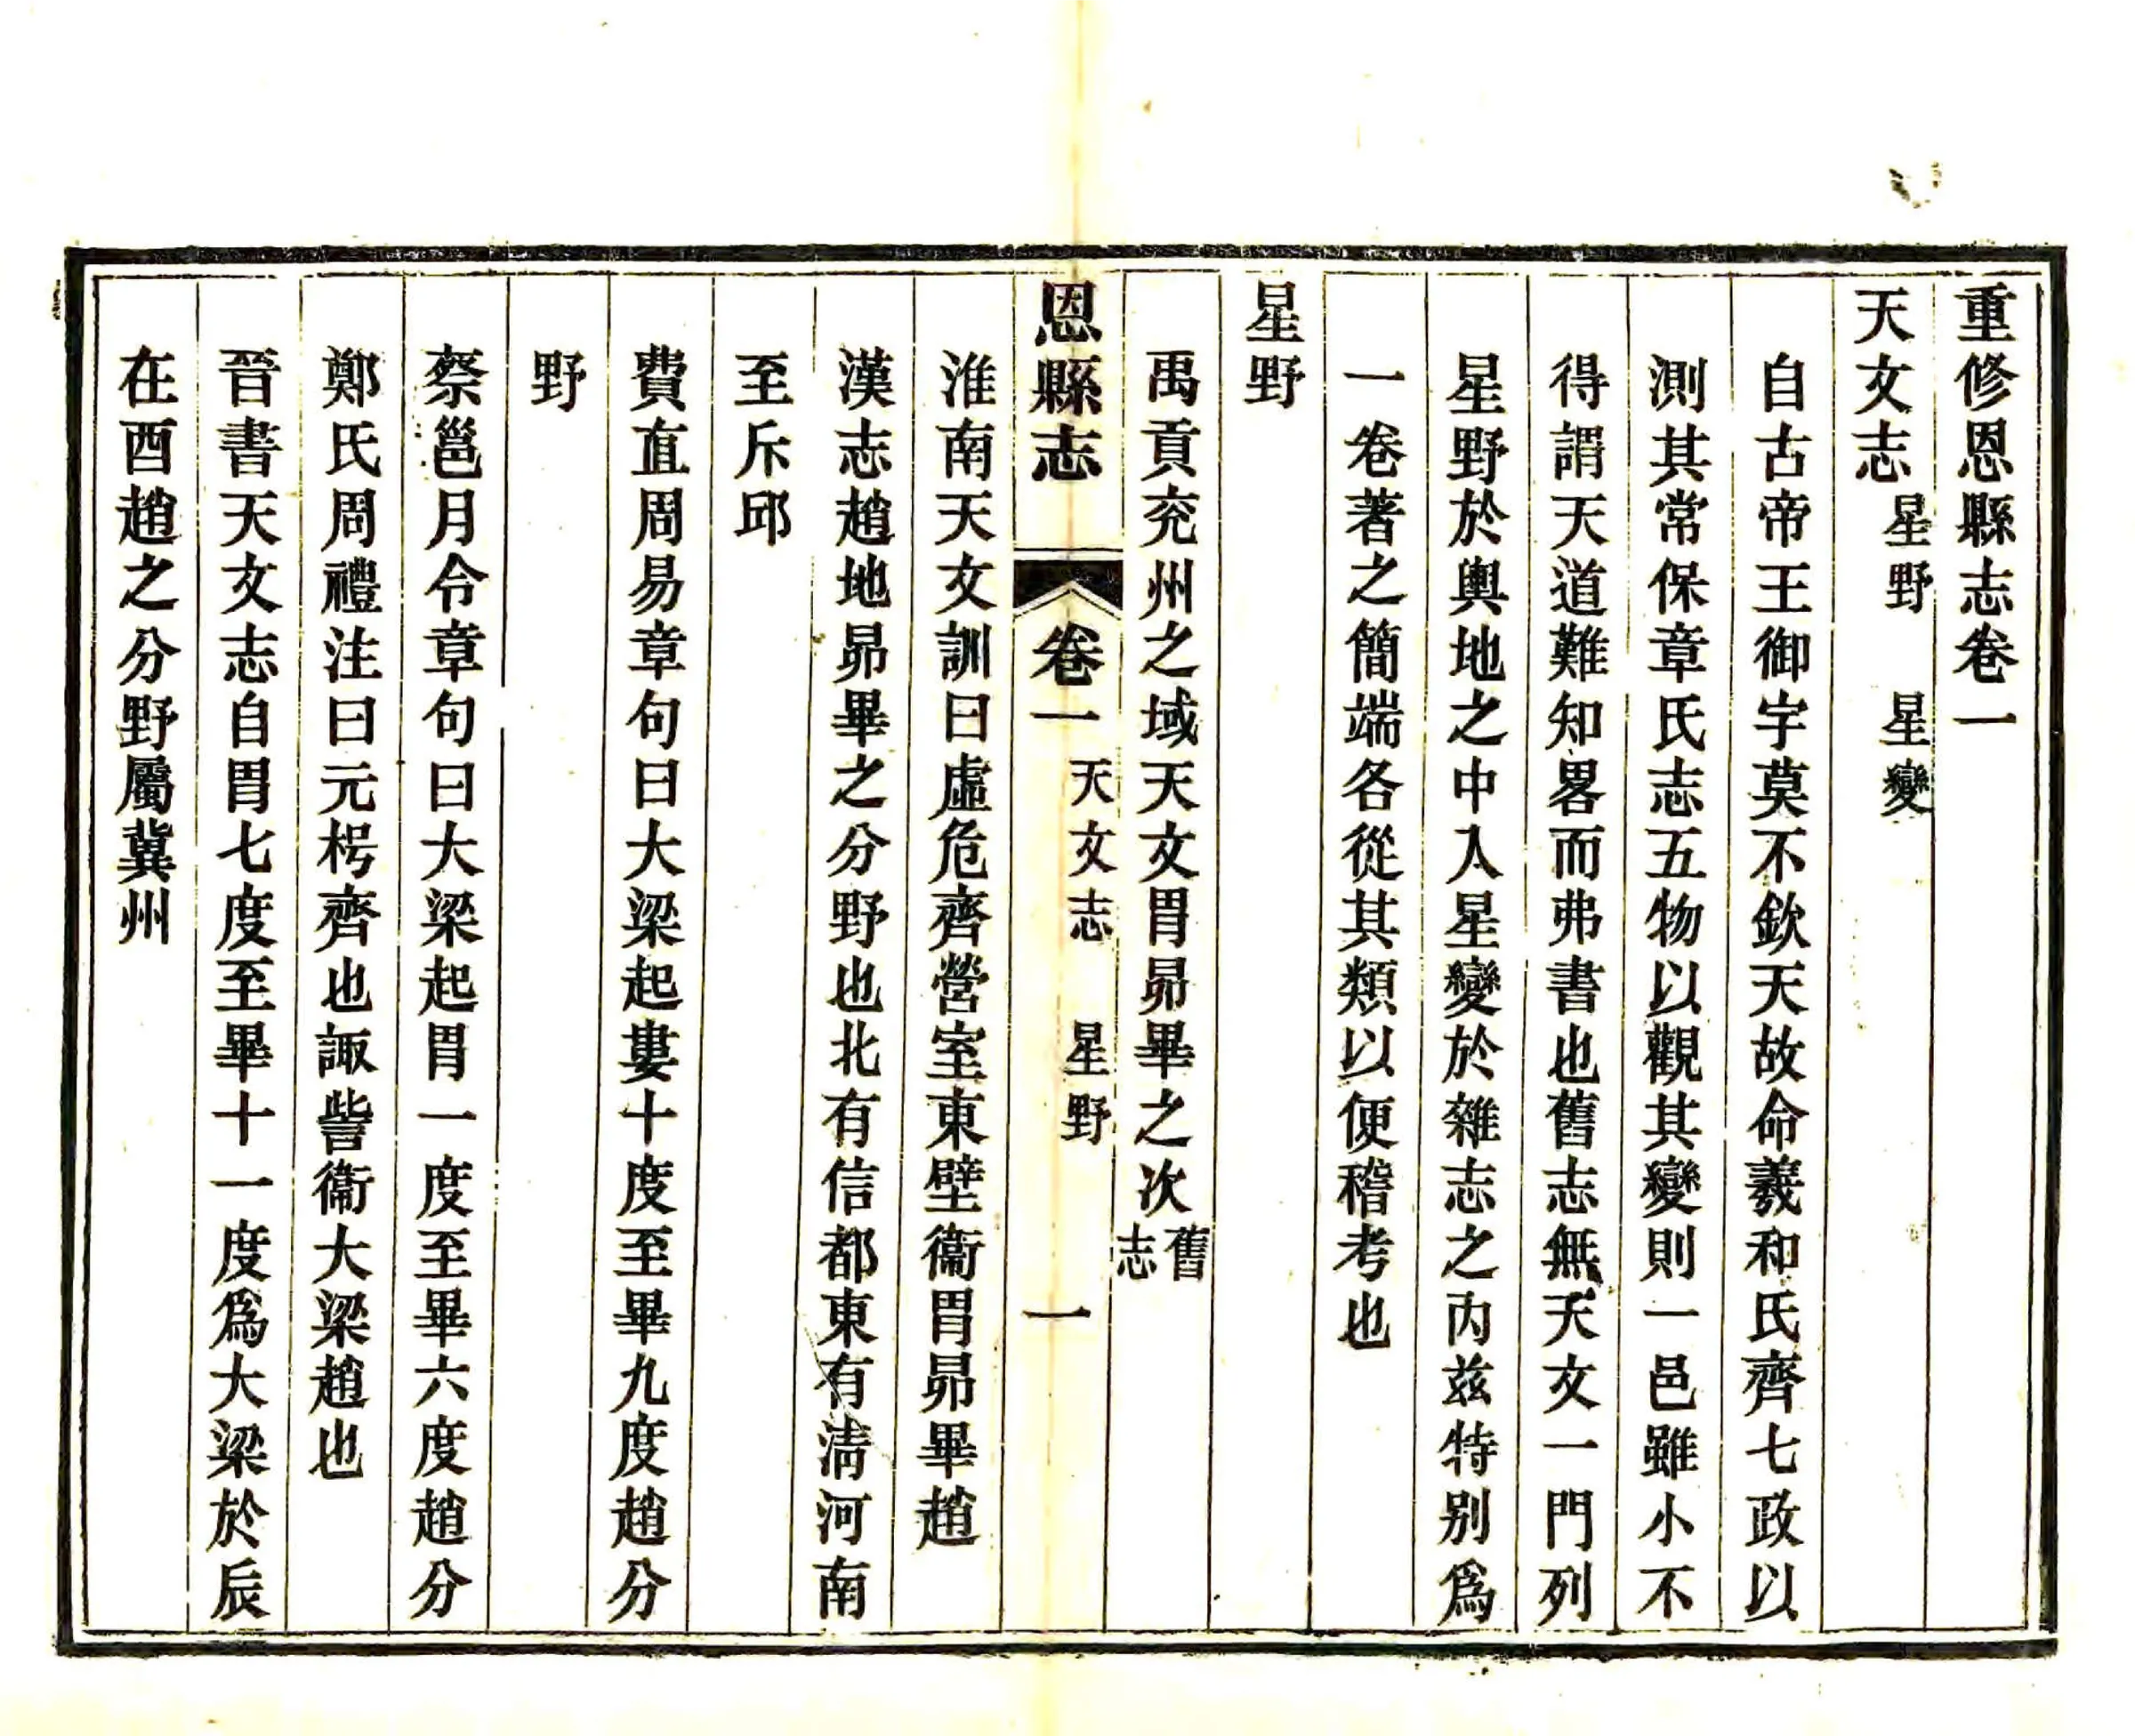 重修恩縣志卷一
天文志 星野 星變
自古帝王御宇莫不欽天故命羲和氏齊七政以
測其常保章氏志五物以觀其變則一邑雖小不
得謂天道難知畧而弗書也舊志無天文一門列
星野於輿地之中入星變於雜志之內兹特别爲
一卷著之簡端各從其類以便稽考也
星野
禹貢兖州之域天文胃昴畢之次舊志
恩縣志 卷一 天文志 星野 一
淮南天文訓曰虛危齊營室東壁衞胃昴畢趙
漢志趙地昴畢之分野也北有信都東有淸河南
至斥邱
費直周易章句曰大梁起婁十度至畢九度趙分
野
蔡邕月令章句曰大梁起胃一度至畢六度趙分
鄭氏周禮注曰元枵齊也諏訾衞大梁趙也
晉書天文志自胃七度至畢十一度爲大梁於辰
在酉趙之分野屬冀州